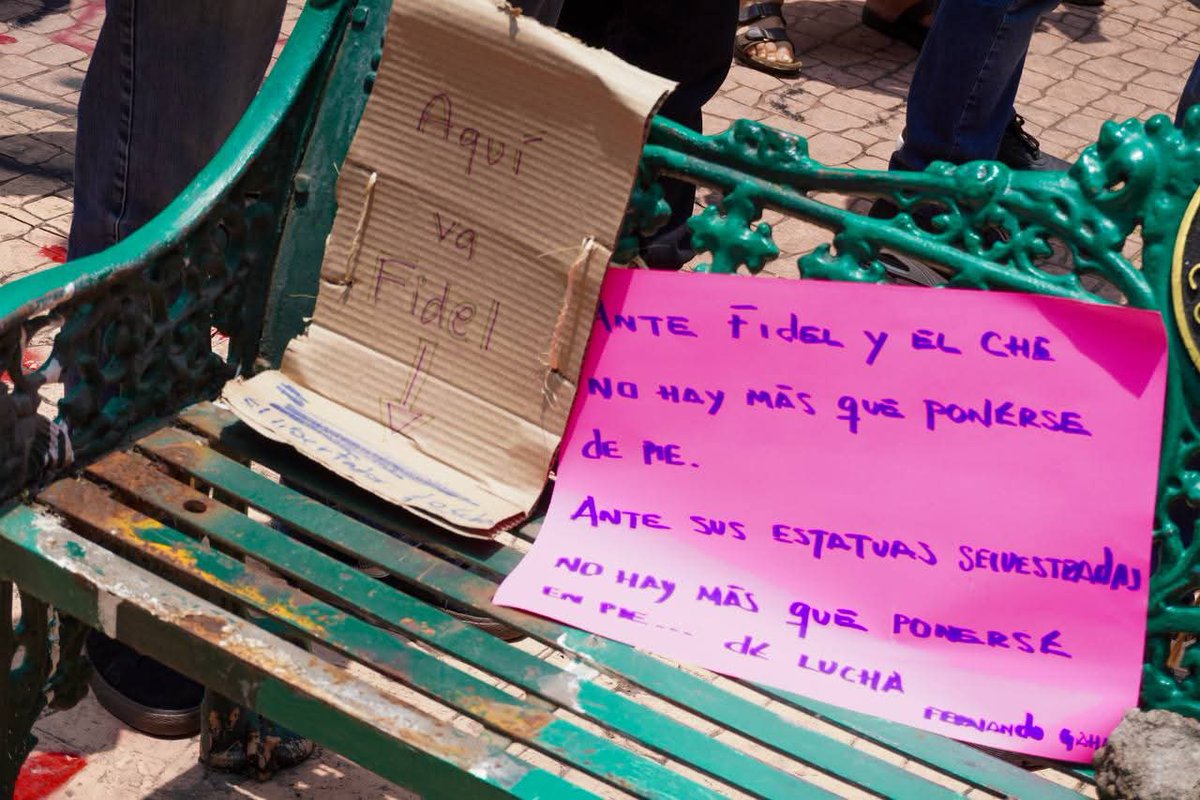 Aquí
va
Fidel
ANTE FidEL y EL CHE
NO HAY MÁS quE PONERSE
dE PIE.
ANTE SUS ESTATUAS SECUESTRAdAS
NO HAY MÁS quE PONERSE
EN PIE... dE LUCHA
FERNANdo